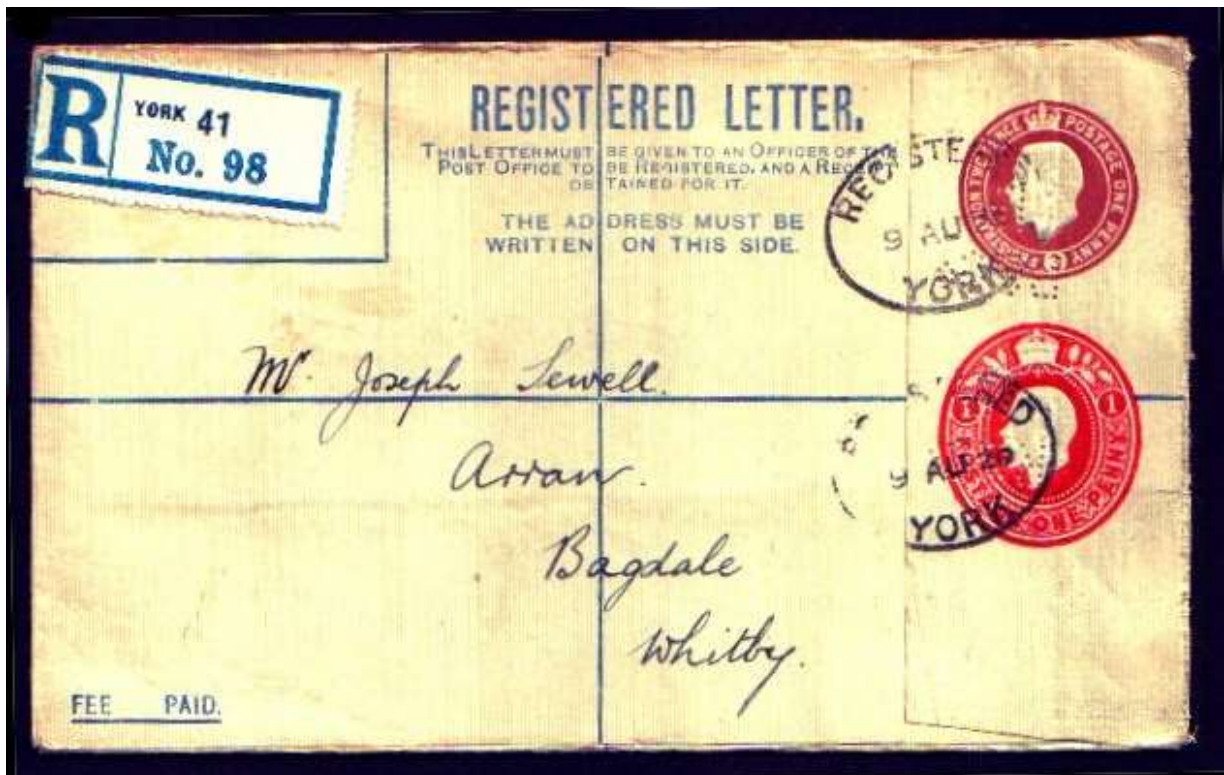 R YORK 41
No. 98
REGISTERED LETTER.
THIS LETTER MUST BE GIVEN TO AN OFFICER OF THE
POST OFFICE TO BE REGISTERED, AND A RECEIPT
OBTAINED FOR IT.
THE ADDRESS MUST BE
WRITTEN ON THIS SIDE.
REGISTERED
9 AU
YORK
POSTAGE ONE PENNY
REGISTRATION TWOPENCE
Mr. Joseph Sewell.
Arran.
Bagdale
Whitby.
9 AU 29
YORK
1 1
ONE PENNY
FEE PAID.